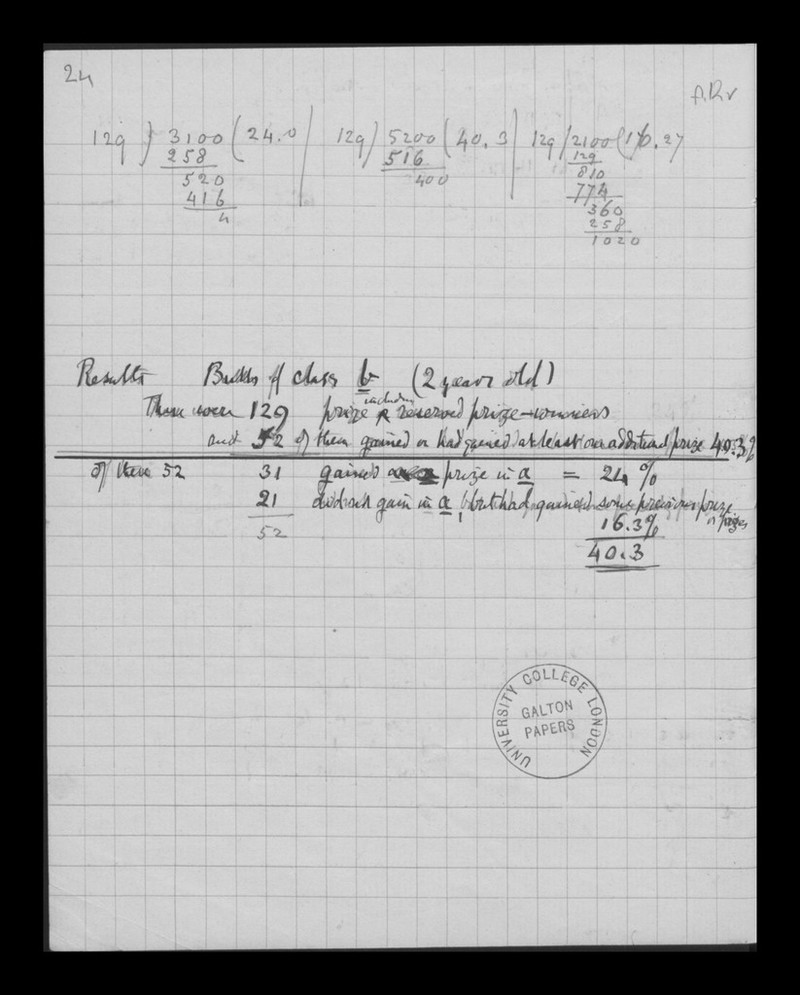 24
129 ) 3100 ( 24.0
258
520
416
4
129 ) 5200 ( 40.3
516
400
129 ) 2100 ( 16.27
129
810
774
360
258
1020
Results Bulls of class b (2 year old)
There were 129 prize including reserved prize-winners
and 52 of them gained or had gained at least one additional prize 40.3%
Of these 52 31 gained prize in a = 24 %
21 did not gain in a, but had gained some previous prize or prizes
16.3%
52
40.3
UNIVERSITY COLLEGE LONDON
GALTON
PAPERS